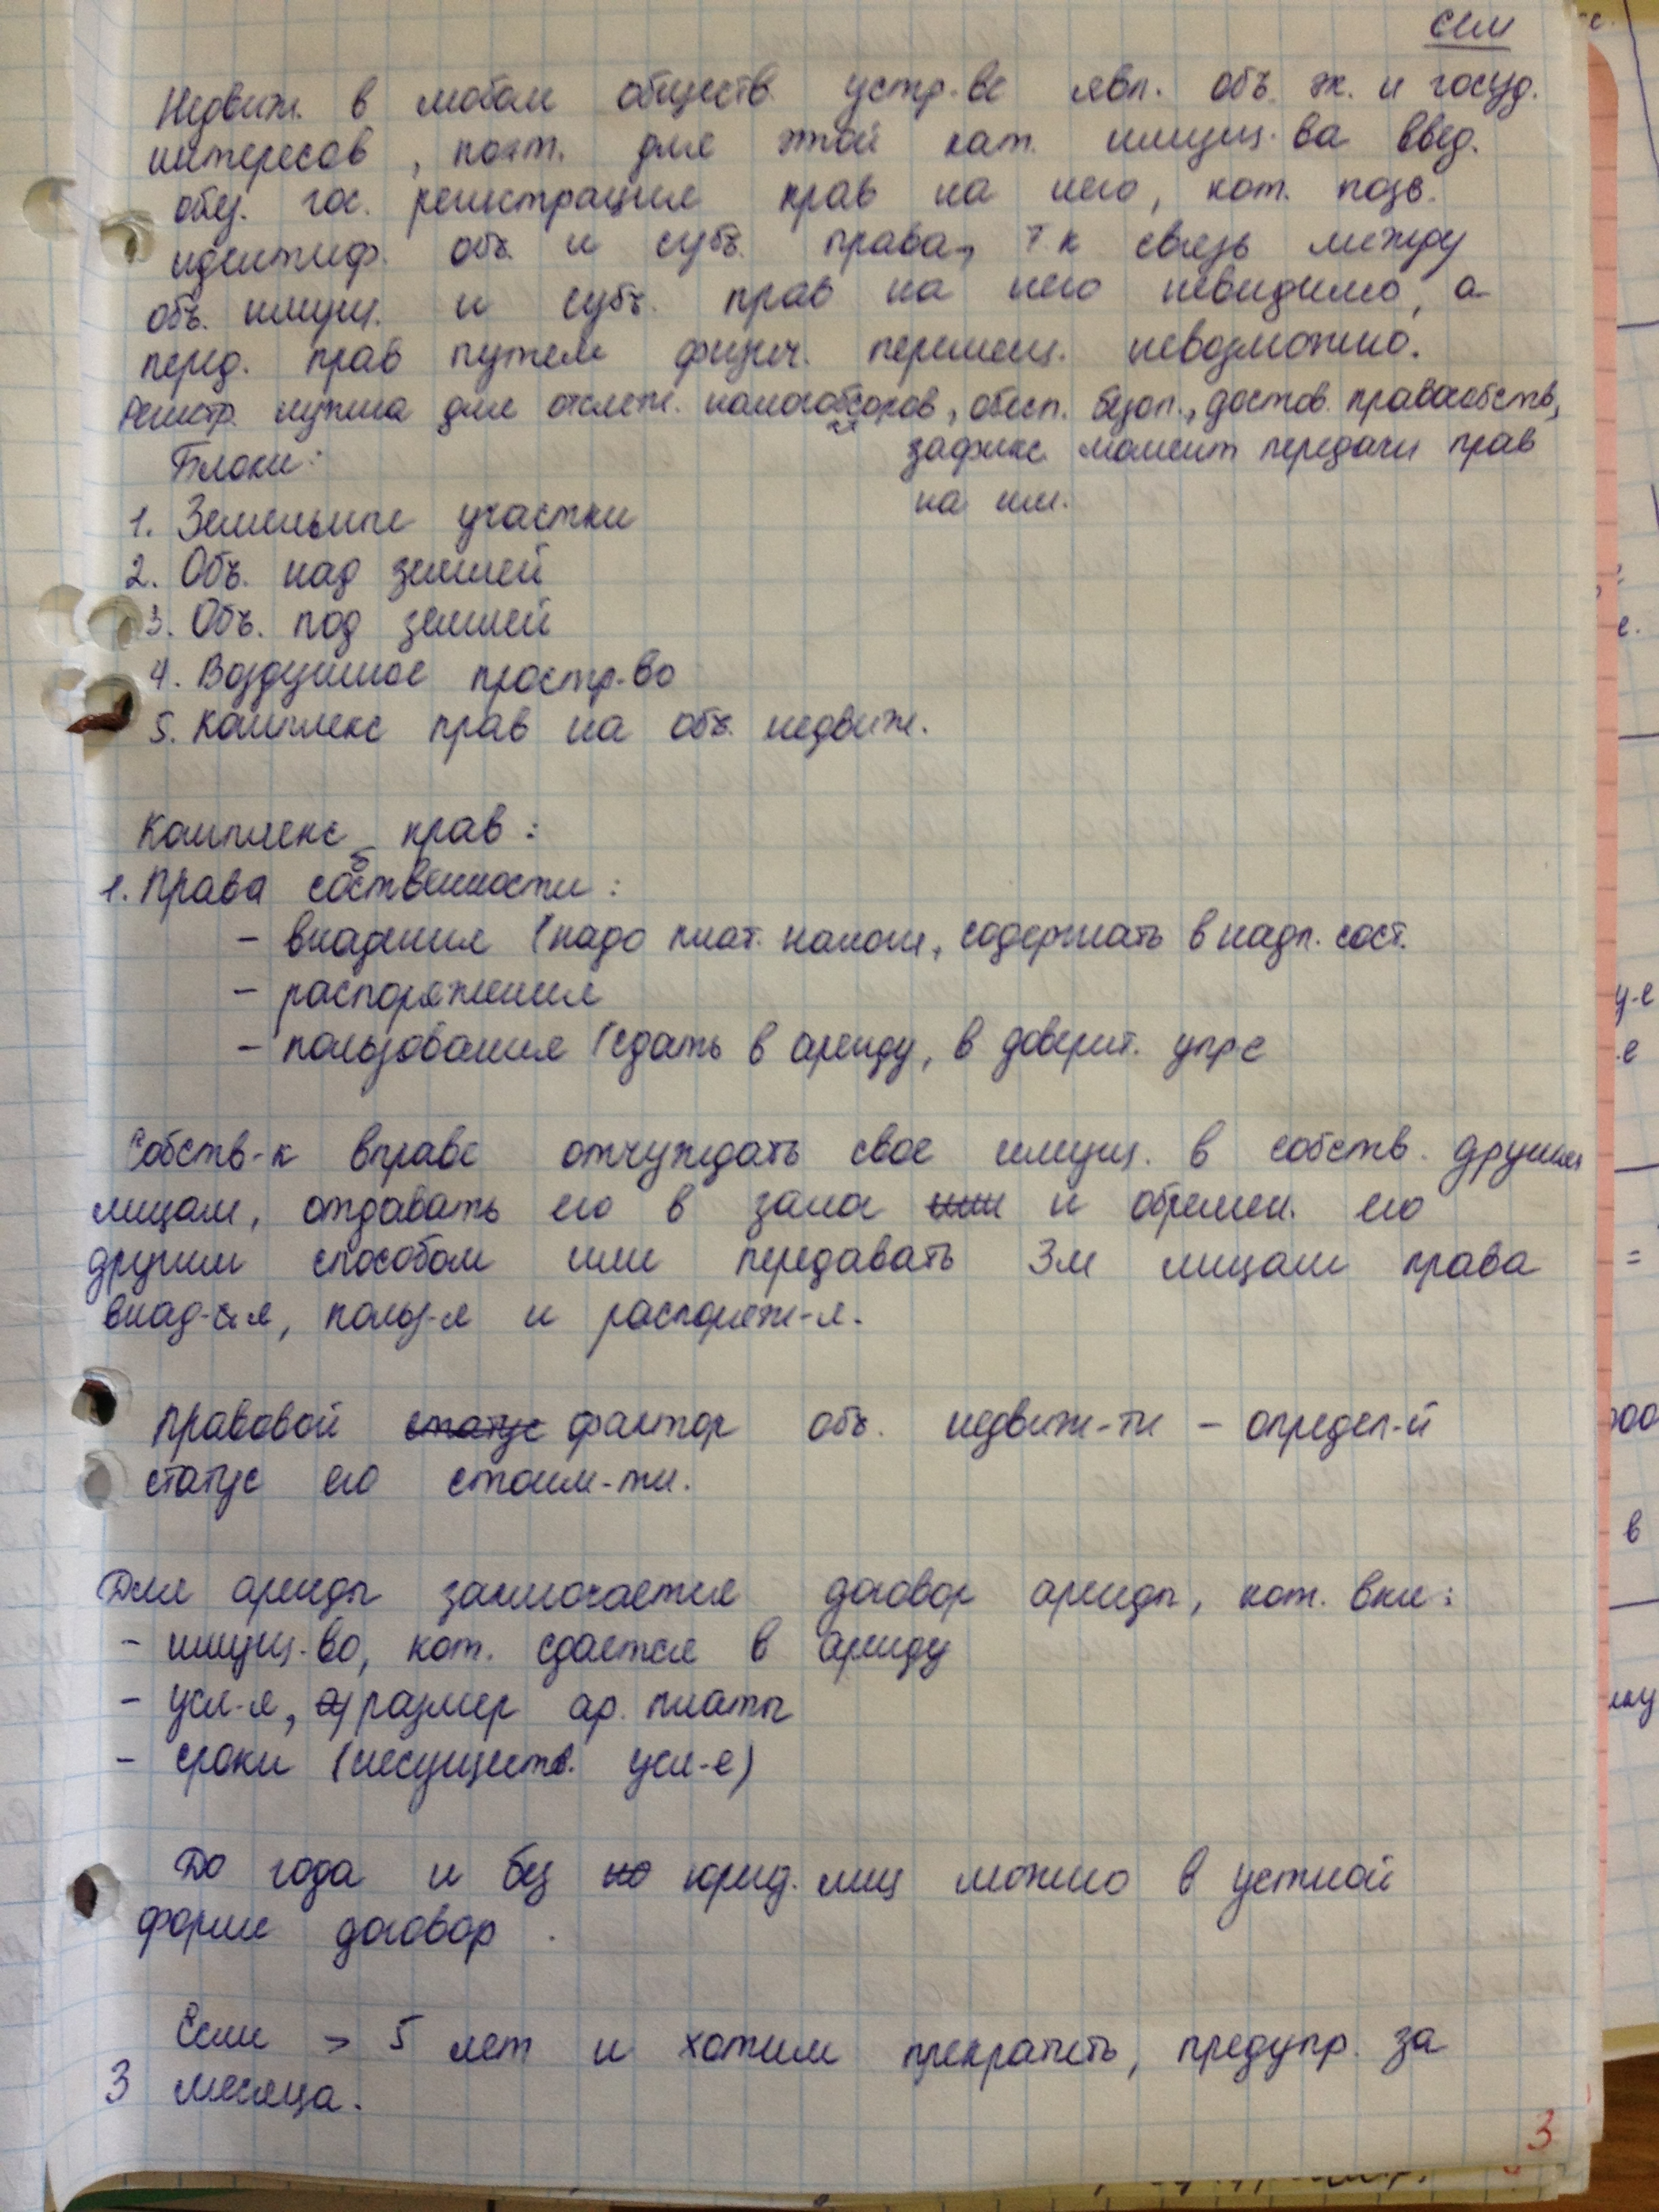 сем
Недвиж. в любом обществ. устр-ве явл. объ. эк. и госуд.
интересов, поэт. для этой кат. имущ-ва введ.
обяз. гос. регистрация прав на него, кот. позв.
идентиф. объ. и субъ. права, т к связь между
объ. имущ. и субъ. прав на него невидимо, а
перед. прав путем физич. перемещ. невозможно.
Регистр. нужна для отслеж. налогосборов, обесп. безоп., достов. правособств,
зафикс. момент передачи прав
на им.
Блоки:
1. Земельные участки
2. Объ. над землей
3. Объ. под землей
4. Воздушное простр-во
5. Комплекс прав на объ. недвиж.
Комплекс прав:
1. Права собственности:
- владения (надо плат. налоги, содержать в надл. сост.
- распоряжения
- пользования (сдать в аренду, в доверит. упр е
Собств-к вправе отчуждать свое имущ. в собств. другим
лицам, отдавать его в залог или и обремен. его
другим способом или передавать 3м лицам права
влад-я, польз-я и распоряж-я.
Правовой статус фактор объ. недвиж-ти - определ-й
статус его стоим-ти.
Для аренды заключается договор аренды, кот. вкл:
- имущ-во, кот. сдается в аренду
- усл-я, размер ар. платы
- сроки (несуществ. усл-е)
До года и без но юрид. лиц можно в устной
форме договор.
Если > 5 лет и хотим прекратить, предупр. за
3 месяца.
3